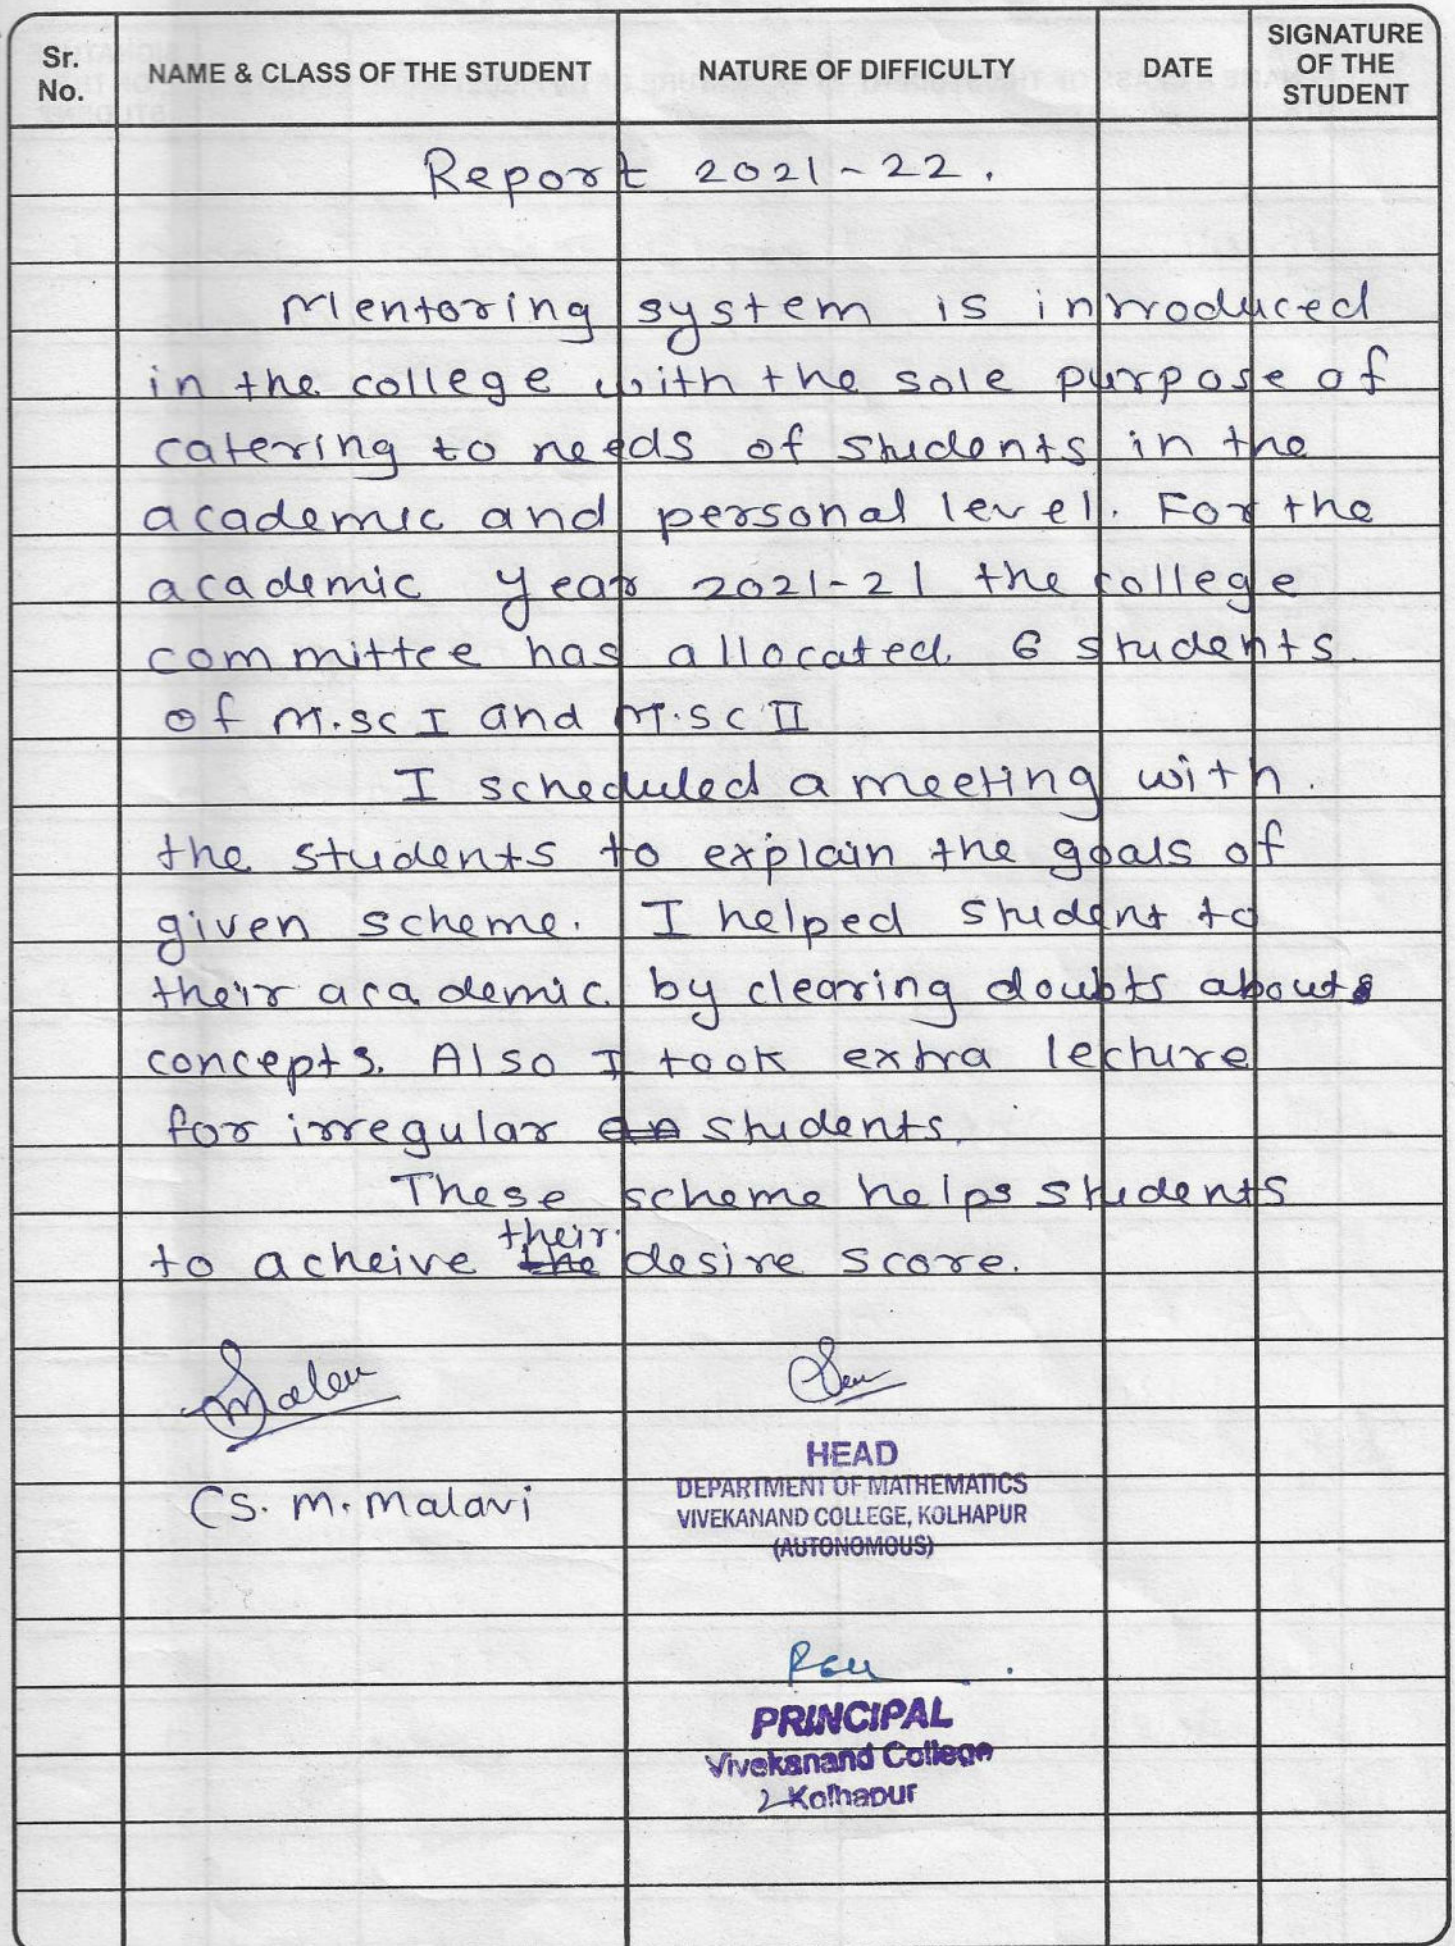 Sr. No.
NAME & CLASS OF THE STUDENT
NATURE OF DIFFICULTY
DATE
SIGNATURE OF THE STUDENT
Report 2021-22.
Mentoring system is introduced
in the college with the sole purpose of
catering to needs of students in the
academic and personal level. For the
academic year 2021-21 the college
committee has allocated. 6 students.
of M.sc I and M.sc II
I scheduled a meeting with.
the students to explain the goals of
given scheme. I helped student to
their academic by clearing doubts about
concepts. Also I took extra lecture
for irregular students.
These scheme helps students
to acheive their desire score.
(S. M. Malavi
HEAD
DEPARTMENT OF MATHEMATICS
VIVEKANAND COLLEGE, KOLHAPUR
(AUTONOMOUS)
PRINCIPAL
Vivekanand College
Kolhapur